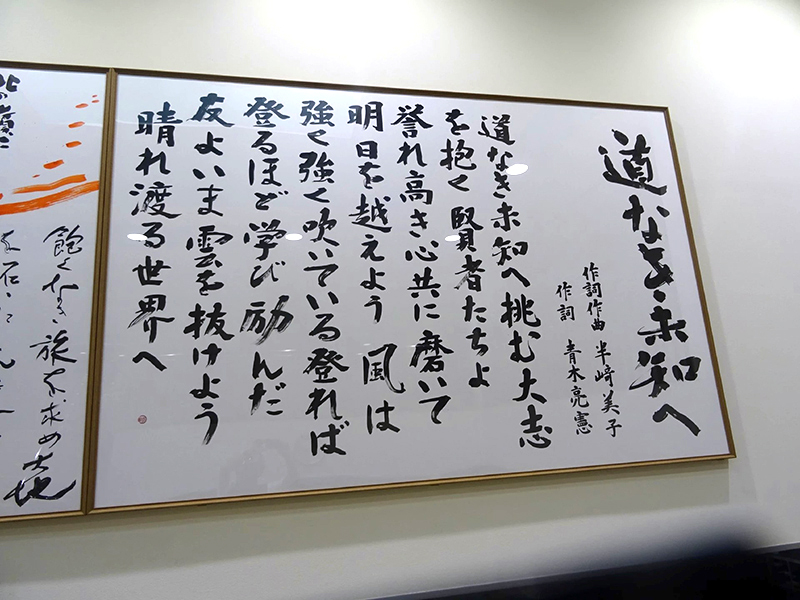 道なき未知へ
作詞作曲 半﨑美子
作詞 青木亮憲
道なき未知へ挑む大志
を抱く賢者たちよ
誉れ高き心共に磨いて
明日を越えよう 風は
強く強く吹いている登れば
登るほど学び励んだ
友よいま雲を抜けよう
晴れ渡る世界へ
飽くなき旅を求め